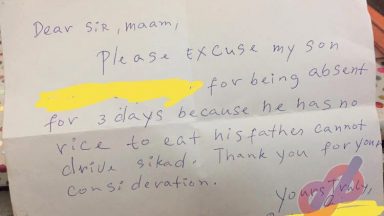 Dear SIR, maam,
Please EXCUSE my son
for being absent
for 3 days because he has no
rice to eat his father cannot
drive sikad. Thank you for your
consideration.
Yours Truly,